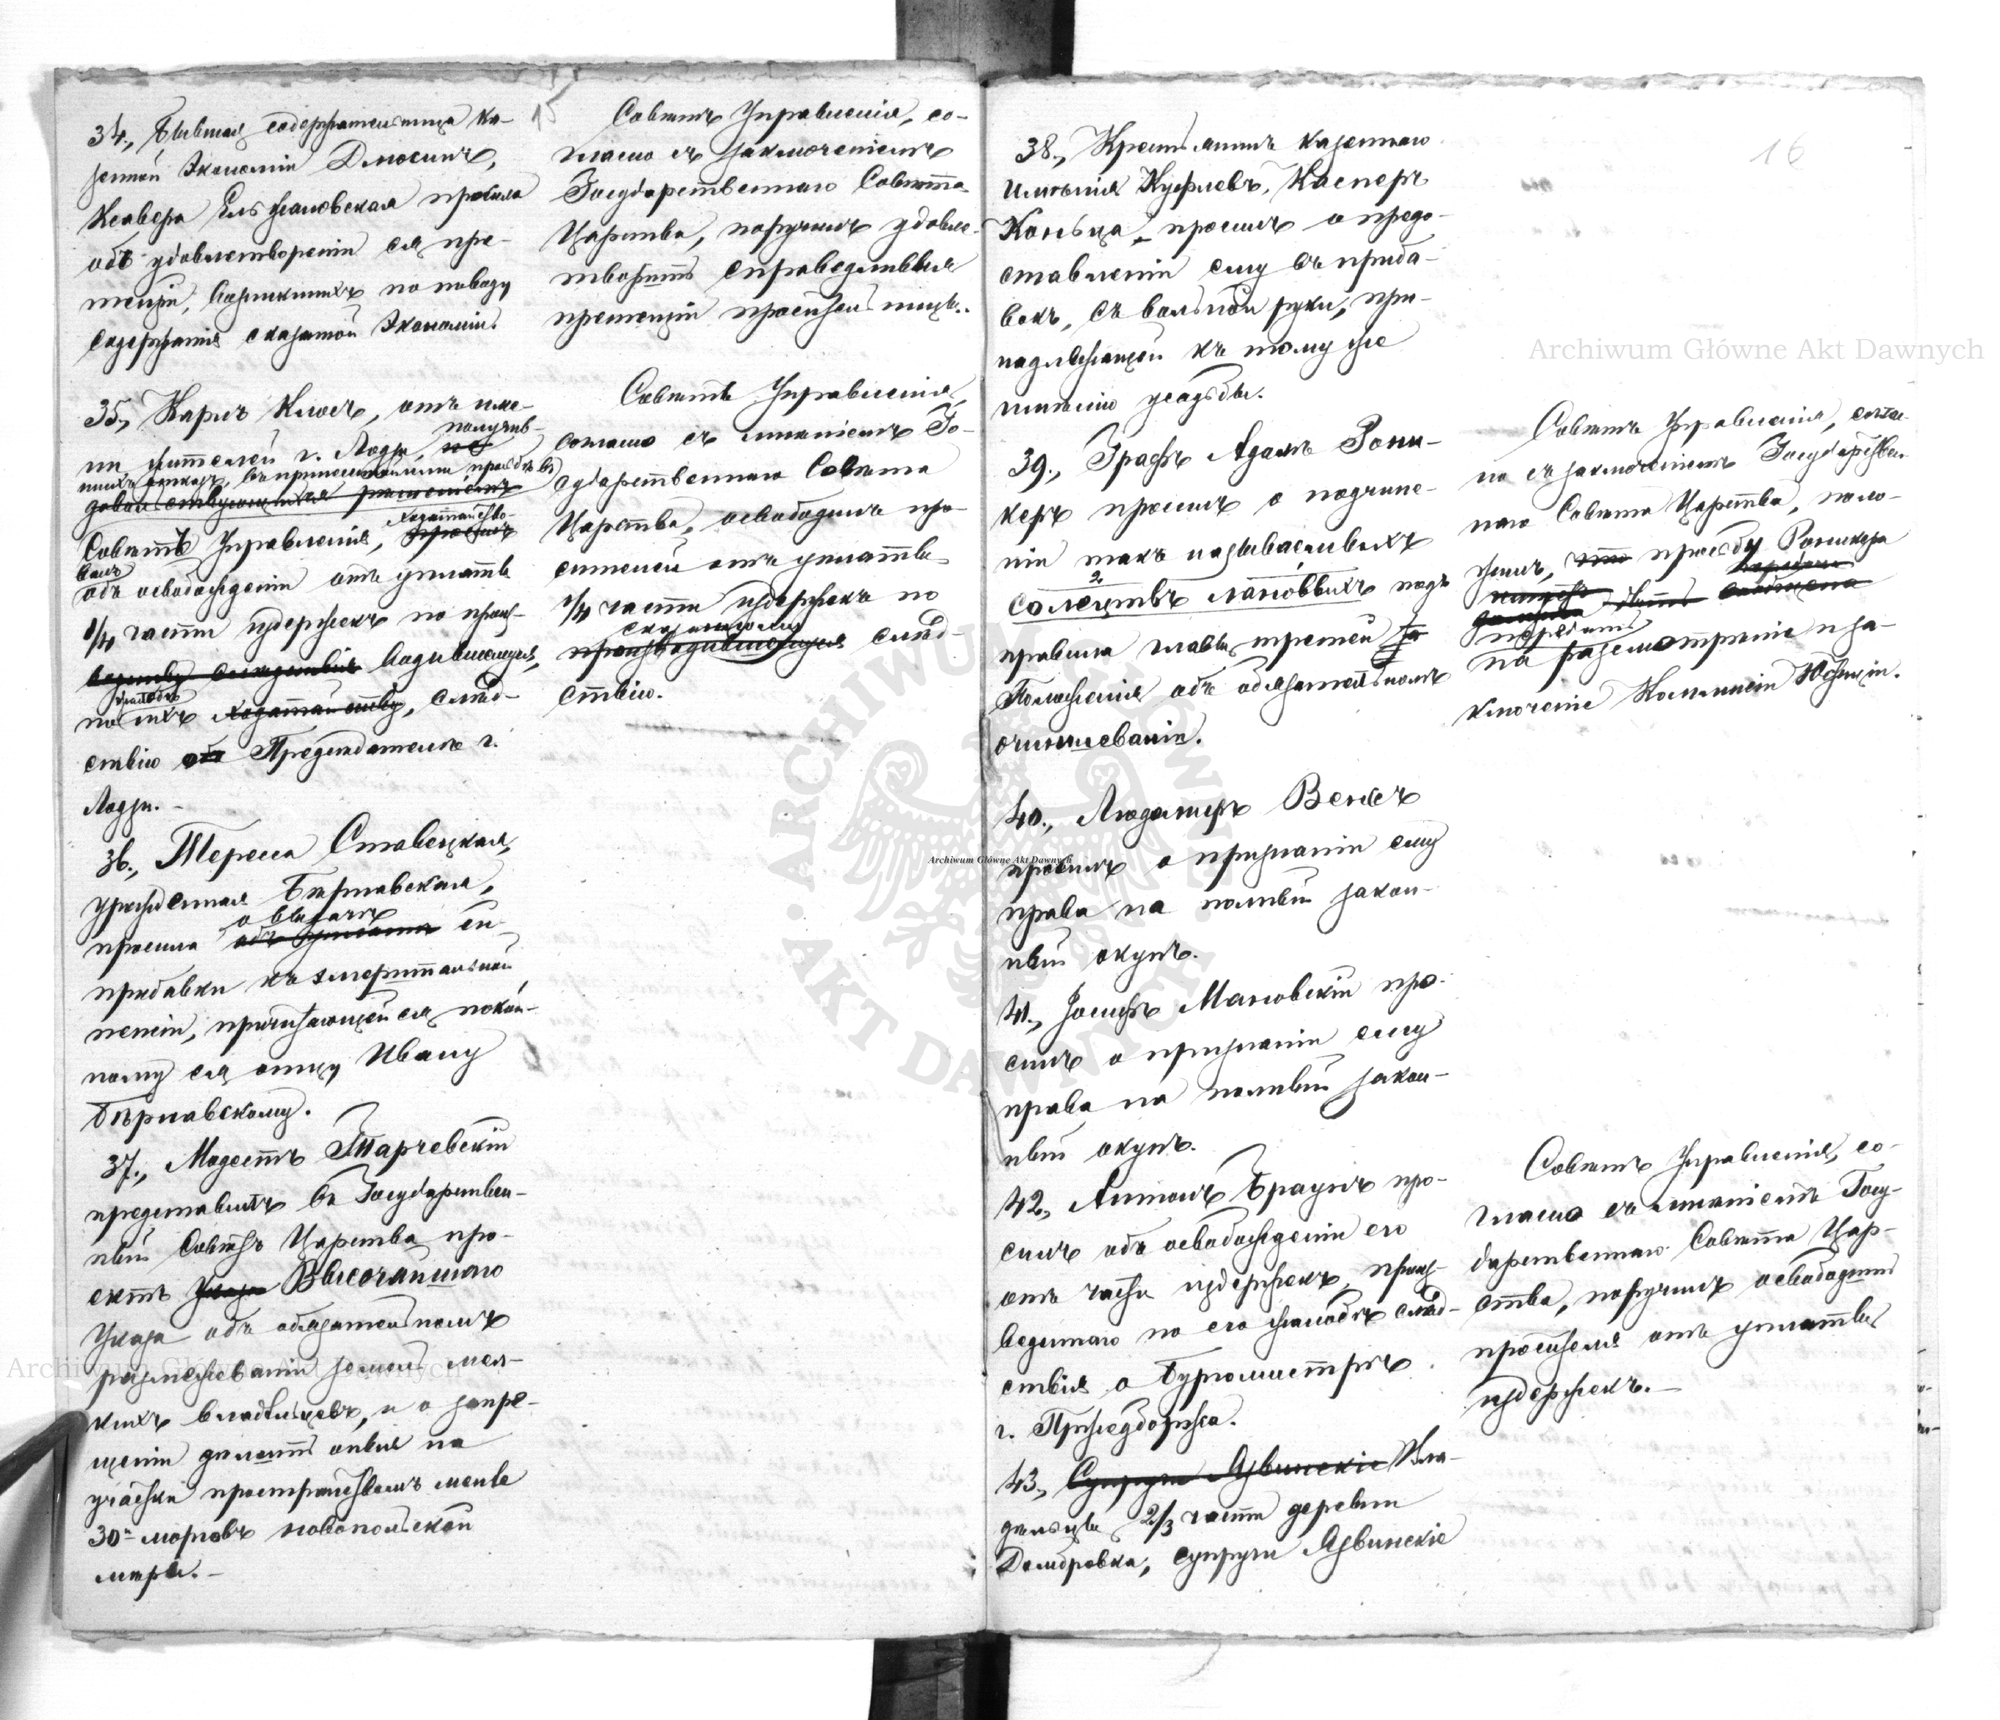 15
34., Бывшая содержательница ка-
зенной Экономіи Длосинъ,
Ксавера Ельжановская просила
объ удовлетвореніи ея пре-
тензіи, возникшихъ по поводу
содержанія сказанной Экономіи.
Совѣтъ Управленія, со-
гласно съ заключеніемъ
Государственнаго Совѣта
Царства, поручилъ удовле-
творить справедливыя
претензіи просительницы.
35., Карлъ Клосъ, отъ име-
ни жителей г. Лодзи, не получив-
шихъ
Совѣтъ Управленія, ходатайство-
валъ
объ освобожденіи отъ уплаты
1/4 части издержекъ по произ-
водившемуся,
по ихъ жалобѣ, слѣд-
ствію о Президентѣ г.
Лодзи.
Совѣтъ Управленія,
согласно съ мнѣніемъ Го-
сударственнаго Совѣта
Царства, освободилъ про-
сителей отъ уплаты
1/4 части издержекъ по
сказанному
производившемуся слѣд-
ствію.
36., Тереса Ставецкая,
урожденная Бѣрнавская,
просила о выдачѣ ей
прибавки къ эмеритальной
пенсіи, причитающейся покой-
ному ея отцу Ивану
Бѣрнавскому.
37., Модестъ Тарчевскій
представилъ въ Государствен-
ный Совѣтъ Царства про-
ектъ Указа Высочайшаго
Указа объ обязательномъ
размежеваніи земель мел-
кихъ владѣльцевъ, и о запре-
щеніи дѣлить оныя на
участки пространствомъ менѣе
30-и морговъ новопольской
мѣры.
16
38., Крестьянинъ казеннаго
имѣнія Куфлевъ, Касперъ
Коньца, просилъ о предо-
ставленіи ему въ приба-
вокъ, съ вольной руки, при-
надлежащей къ тому же
имѣнію усадьбы.
39., Графъ Адамъ Рони-
керъ просилъ о подчине-
ніи такъ называемыхъ
солецтвъ лановыхъ подъ
правила главы третей
Положенія объ обязательномъ
очиншеваніи.
Совѣтъ Управленія, соглас-
но съ заключеніемъ Государствен-
наго Совѣта Царства, поло-
жилъ, что просьбу Роникера
передать
на разсмотрѣніе и за-
ключеніе Коммисіи Юстиціи.
40., Людомиръ Венсъ
просилъ о признаніи ему
права на полный закон-
ный окупъ.
41., Іосифъ Маковскій про-
силъ о признаніи ему
права на полный закон-
ный окупъ.
42., Антонъ Браунъ про-
силъ объ освобожденіи его
отъ части издержекъ, произ-
веденнаго по его жалобѣ слѣд-
ствія о Бургомистрѣ
г. Пржедборжа.
Совѣтъ Управленія, со-
гласно съ мнѣніемъ Госу-
дарственнаго Совѣта Цар-
ства, поручилъ освободить
просителя отъ уплаты
издержекъ.
43., Супруги Язвинскіе Вла-
дѣльцы 2/3 части деревни
Домбровка, супруги Язвинскіе
Archiwum Główne Akt Dawnych
Archiwum Główne Akt Dawnych
Archiwum Główne Akt Dawnych
ARCHIWUM GŁÓWNE AKT DAWNYCH